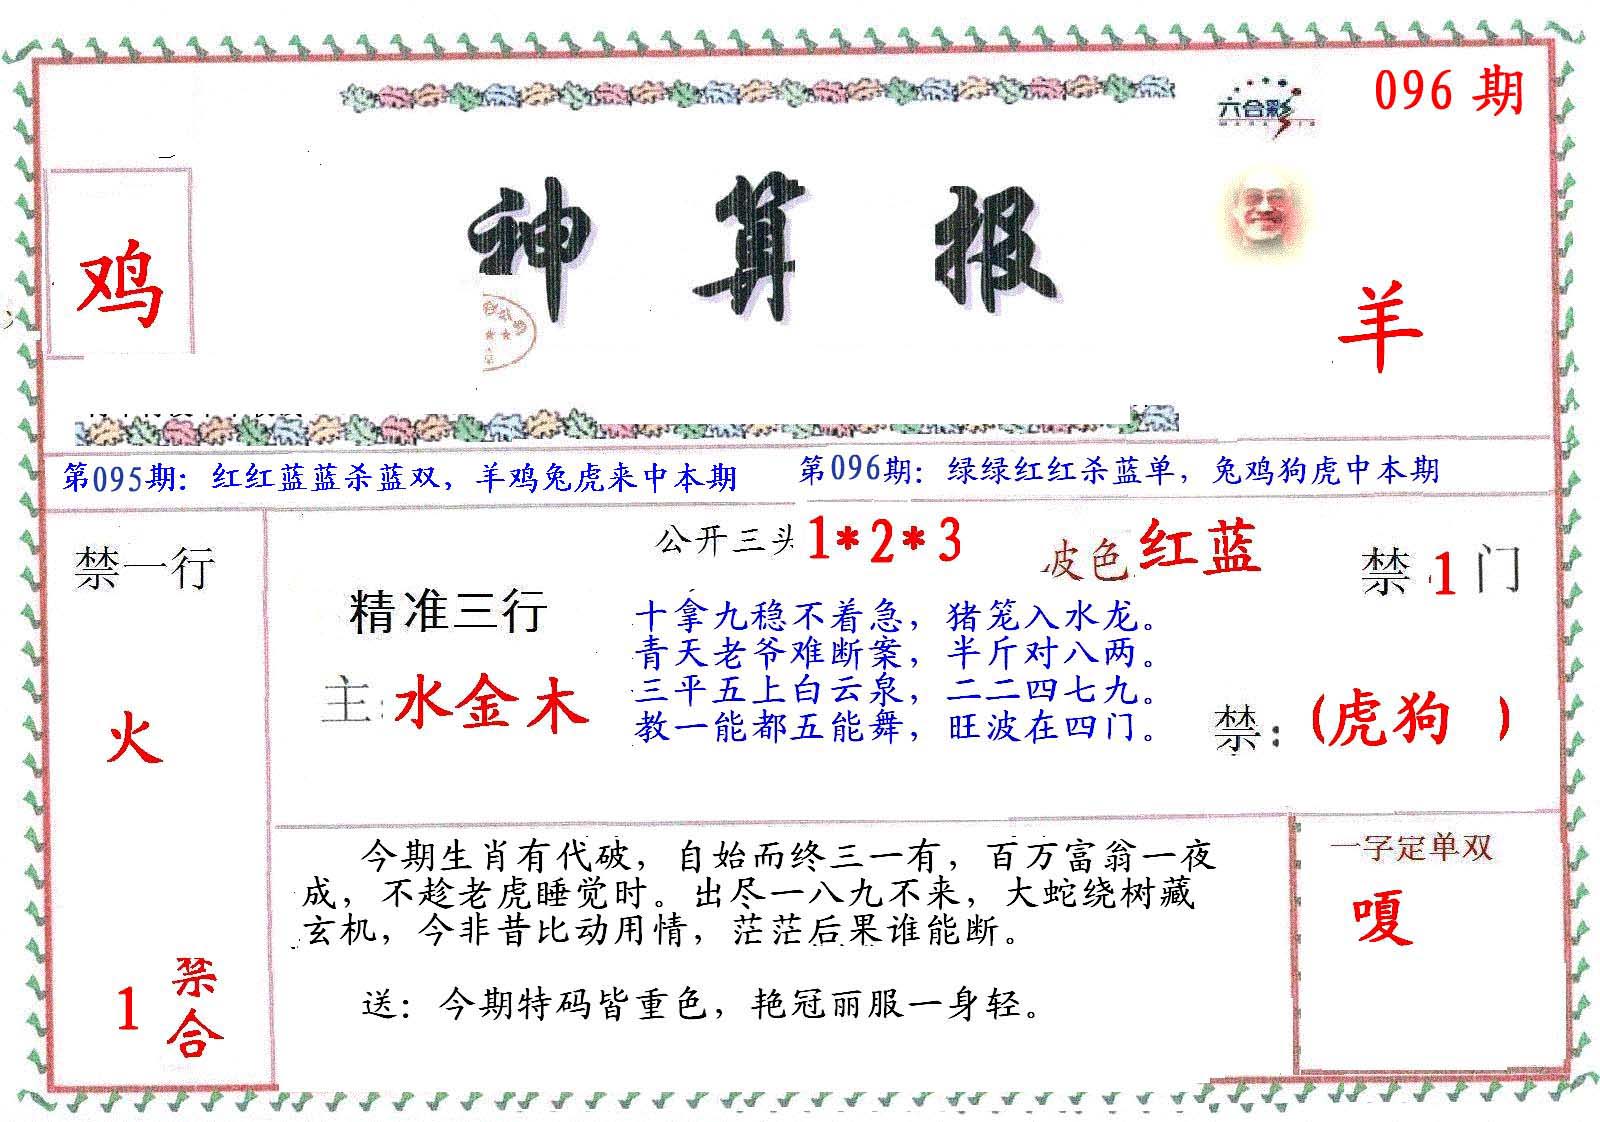 096 期
六合彩
鸡
神 算 报
羊
第095期：红红蓝蓝杀蓝双，羊鸡兔虎来中本期
第096期：绿绿红红杀蓝单，兔鸡狗虎中本期
禁一行
火
1 禁合
精准三行
主：水金木
公开三头 1*2*3
波色 红蓝
禁 1 门
十拿九稳不着急，猪笼入水龙。
青天老爷难断案，半斤对八两。
三平五上白云泉，二二四七九。
教一能都五能舞，旺波在四门。
禁：（虎狗 ）
今期生肖有代破，自始而终三一有，百万富翁一夜
成，不趁老虎睡觉时。出尽一八九不来，大蛇绕树藏
玄机，今非昔比动用情，茫茫后果谁能断。
送：今期特码皆重色，艳冠丽服一身轻。
一字定单双
嘎